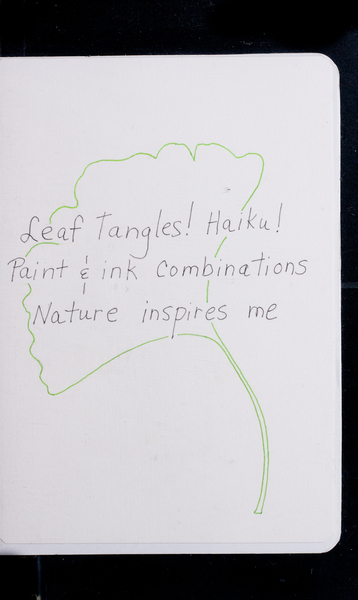 Leaf Tangles! Haiku!
Paint & ink Combinations
Nature inspires me